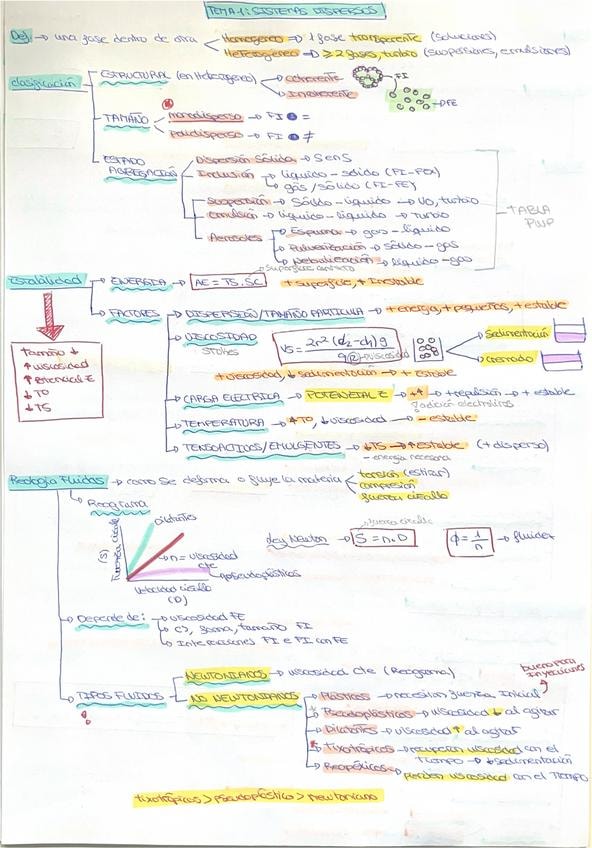 TEMA 1: SISTEMAS DISPERSOS
Def → una fase dentro de otra
Homogéneo → 1 fase transparente (soluciones)
Heterogéneo → ≥2 fases, turbio (suspensiones, emulsiones)
Clasificación
ESTRUCTURAL (en Heterogéneo)
coherente
Incoherente
FI
FE
TAMAÑO
monodisperso → FI =
polidisperso → FI ≠
ESTADO AGREGACIÓN
Dispersión Sólida → SenS
Inclusión → líquido - sólido (FI-FEX)
gas/sólido (FI-FE)
Suspensión → Sólido - líquido → VO, turbio
Emulsión → líquido - líquido → turbio
Aerosoles
Espuma → gas - líquido
Pulverización → sólido - gas
Nebulización → líquido - gas
TABLA
PWP
Estabilidad
ENERGÍA → AE = TS.SC
Superficie contacto
+ superficie, + Inestable
FACTORES
DISPERSIÓN/TAMAÑO PARTÍCULA → + energía, + pequeñas, + estable
VISCOSIDAD
Stokes
VS = 2r² (d2-d1) g
9 n viscosidad
Sedimentación
Cremado
+ viscosidad, ↓ sedimentación → + Estable
CARGA ELÉCTRICA → POTENCIAL Z → + repulsión → + estable
adición electrolitos
TEMPERATURA → ↑Tº, ↓ viscosidad → - estable
TENSOACTIVOS/EMULGENTES → ↓TS → ↑ estable (+ disperso)
- energía necesaria
Tamaño ↓
↑ viscosidad
↑ Potencial Z
↓ Tº
↓ TS
Reología Fluidos → como se deforma o fluye la materia
torsión (estirar)
compresión
fuerza cizalla
Reograma
(S)
Fuerza cizalla
dilatantes
n = viscosidad cte
pseudoplásticos
Velocidad cizalla
(D)
Ley Newton → S = n.D
fuerza cizalla
φ = 1/n → fluidez
Depende de: → viscosidad FE
C], forma, tamaño FI
Interacciones FI e FI con FE
TIPOS FLUIDOS
NEWTONIANOS → viscosidad cte (Reograma)
NO NEWTONIANOS
Plásticos → necesitan fuerza Inicial
Pseudoplásticos → viscosidad ↓ al agitar
Dilatantes → viscosidad ↑ al agitar
Tixotrópicos → recuperan viscosidad con el
Tiempo → ↓ sedimentación
Reopéxicos → pierden viscosidad con el TIEMPO
bueno para
Inyecciones
tixotrópicos > pseudoplástico > newtoniano